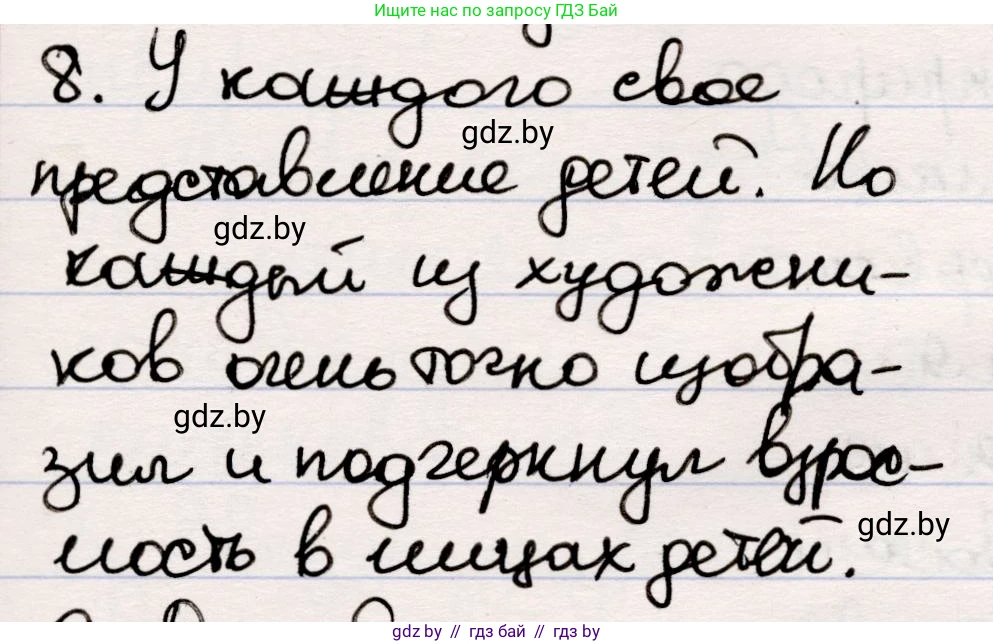 Ищите нас по запросу ГДЗ Бай
8. У каждого свое
gdz.by
представление детей. Но
gdz.by
каждый из художни-
ков очень точно изобра-
gdz.by
зил и подчеркнул взрос-
gdz.by
лость в лицах детей.
gdz.by // гдз бай // гдз by